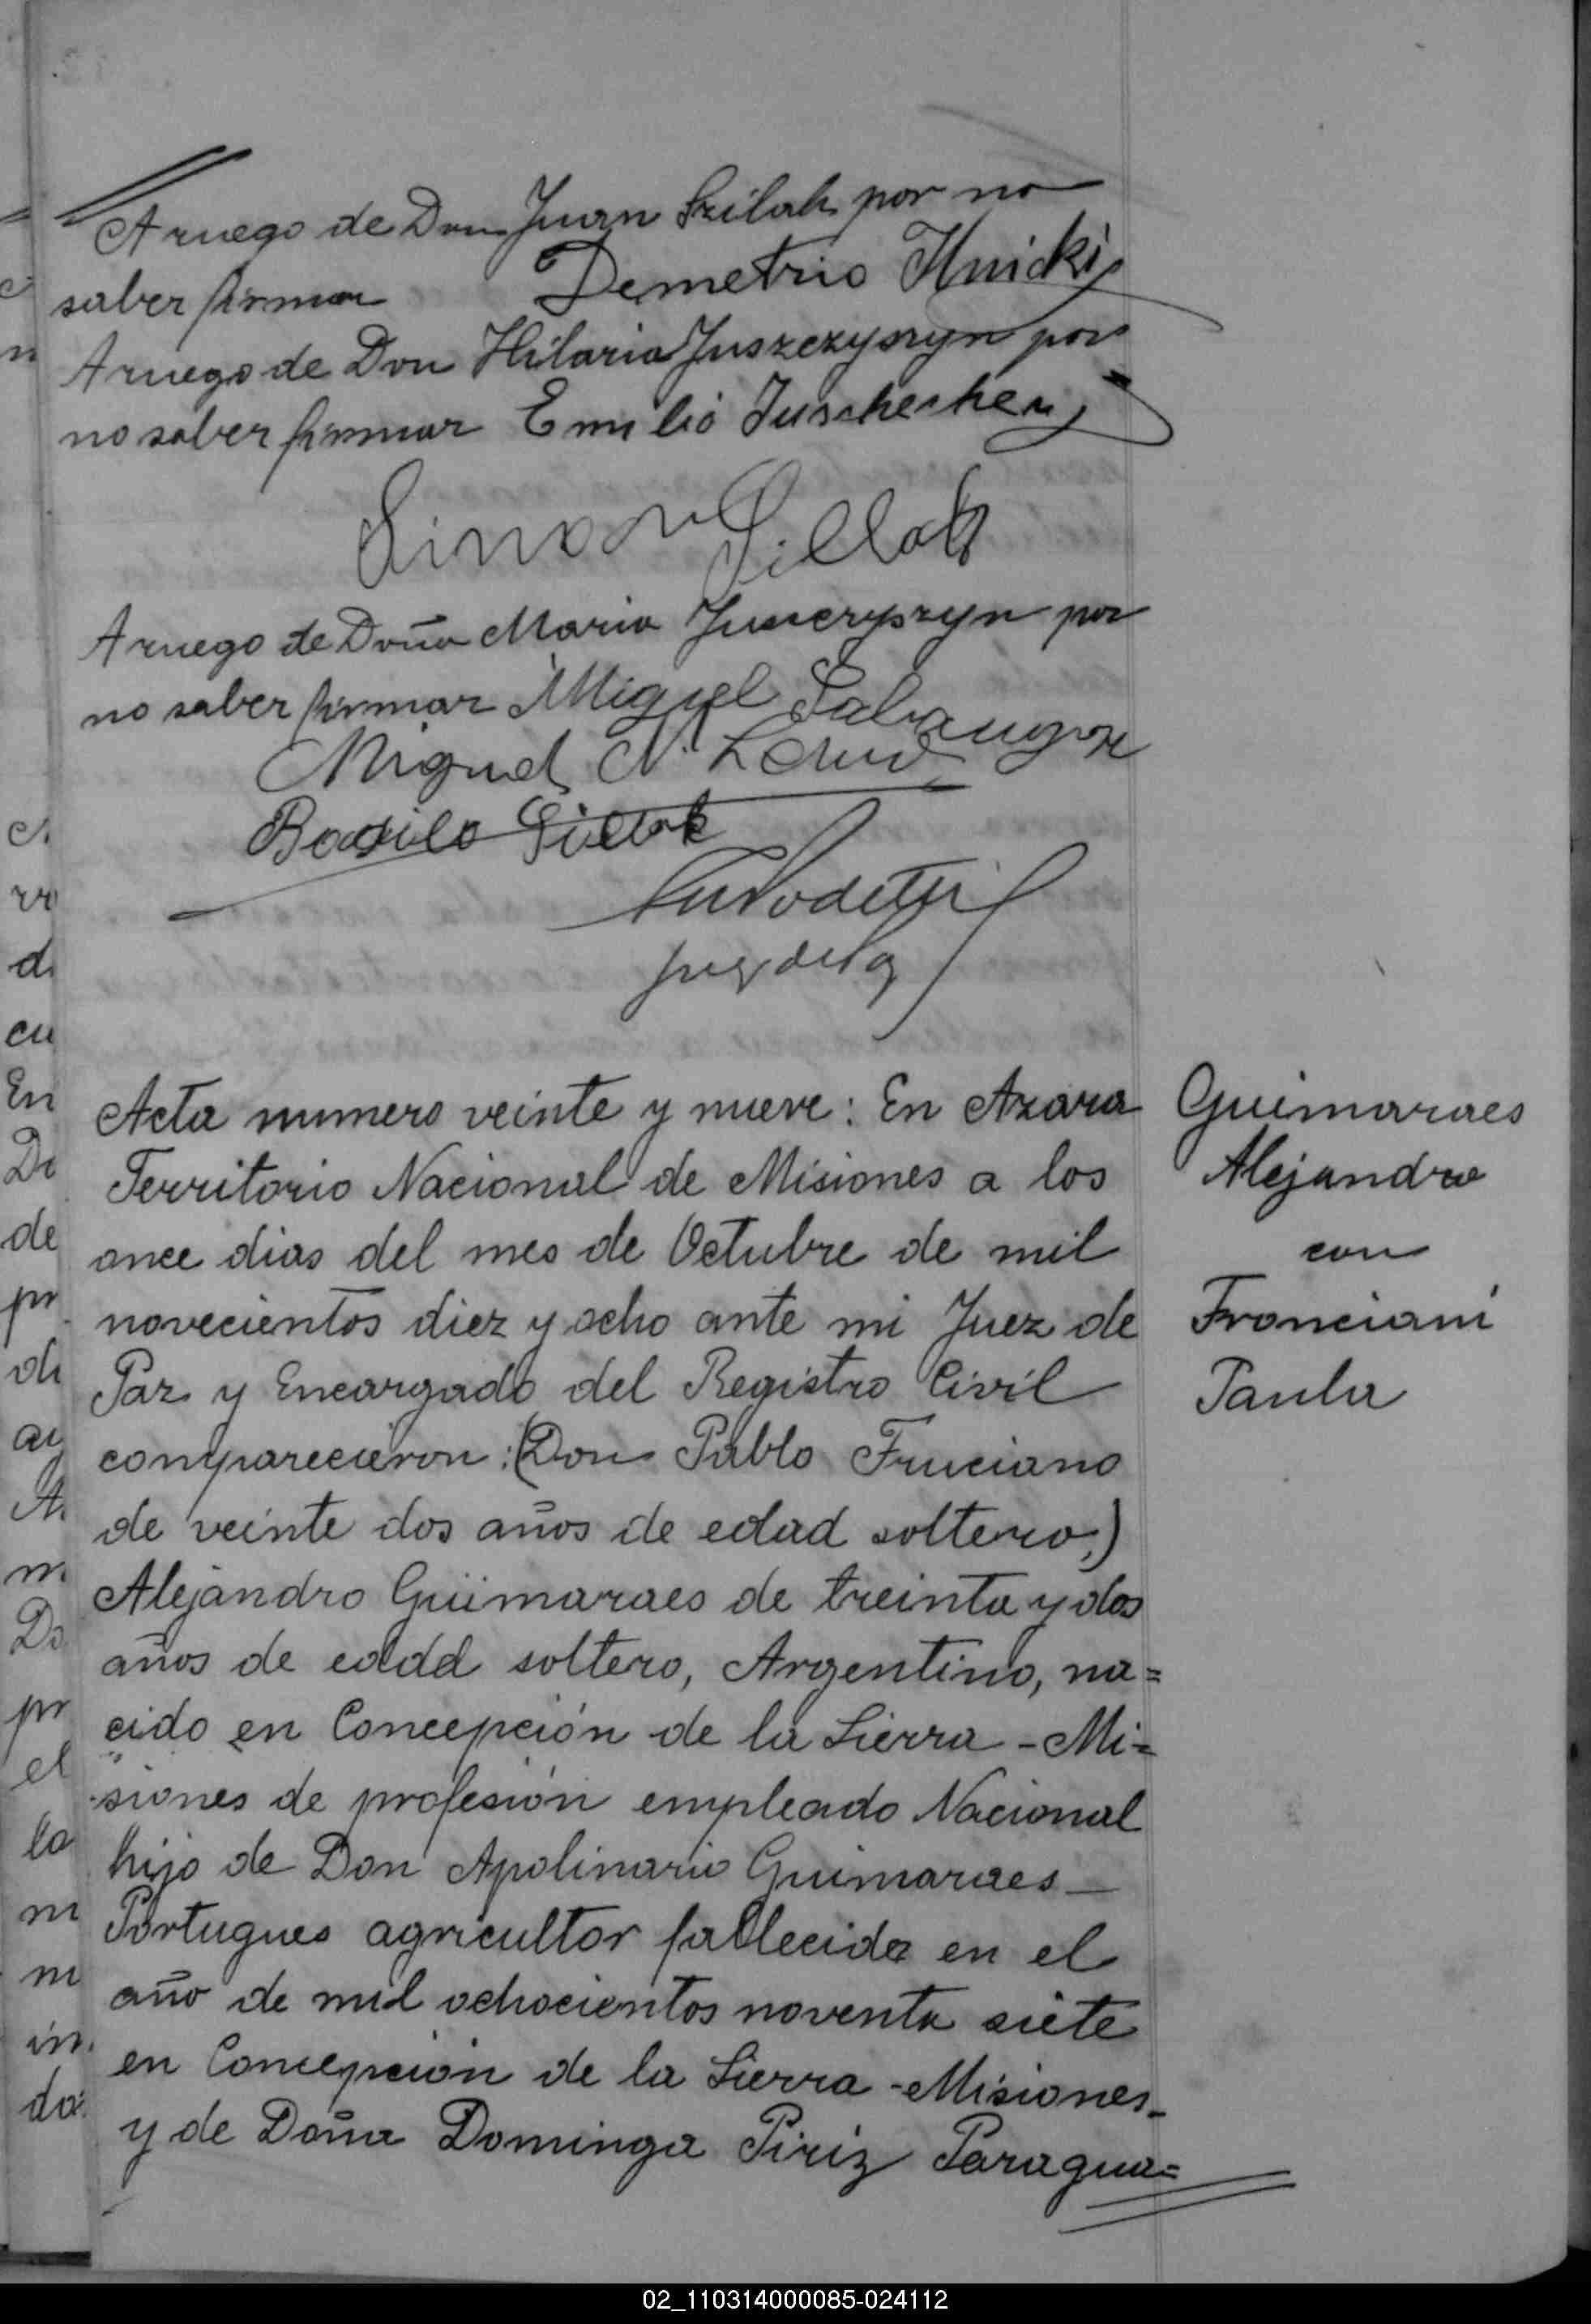 A ruego de Don Juan Szilak por no
saber firmar Demetrio Hnicki
A ruego de Don Hilario Juszczyszyn por
no saber firmar Emilio
Simon Sillak
A ruego de Doña Maria Juszczyszyn por
no saber firmar Miguel
Miguel N.
Basilo Sillak
Acta numero veinte y nueve: En Azara
Territorio Nacional de Misiones a los
once dias del mes de Octubre de mil
novecientos diez y ocho ante mi Juez de
Paz y Encargado del Registro Civil
comparecieron: (Don Pablo Fruciano
de veinte dos años de edad soltero,)
Alejandro Guimaraes de treinta y dos
años de edad soltero, Argentino, na=
cido en Concepción de la Sierra - Mi=
siones de profesión empleado Nacional
hijo de Don Apolinario Guimaraes
Portugues agricultor fallecido en el
año de mil ochocientos noventa siete
en Concepción de la Sierra - Misiones
y de Doña Dominga Piriz Paragua=
Guimaraes
Alejandro
con
Fronciani
Paula
02_110314000085-024112